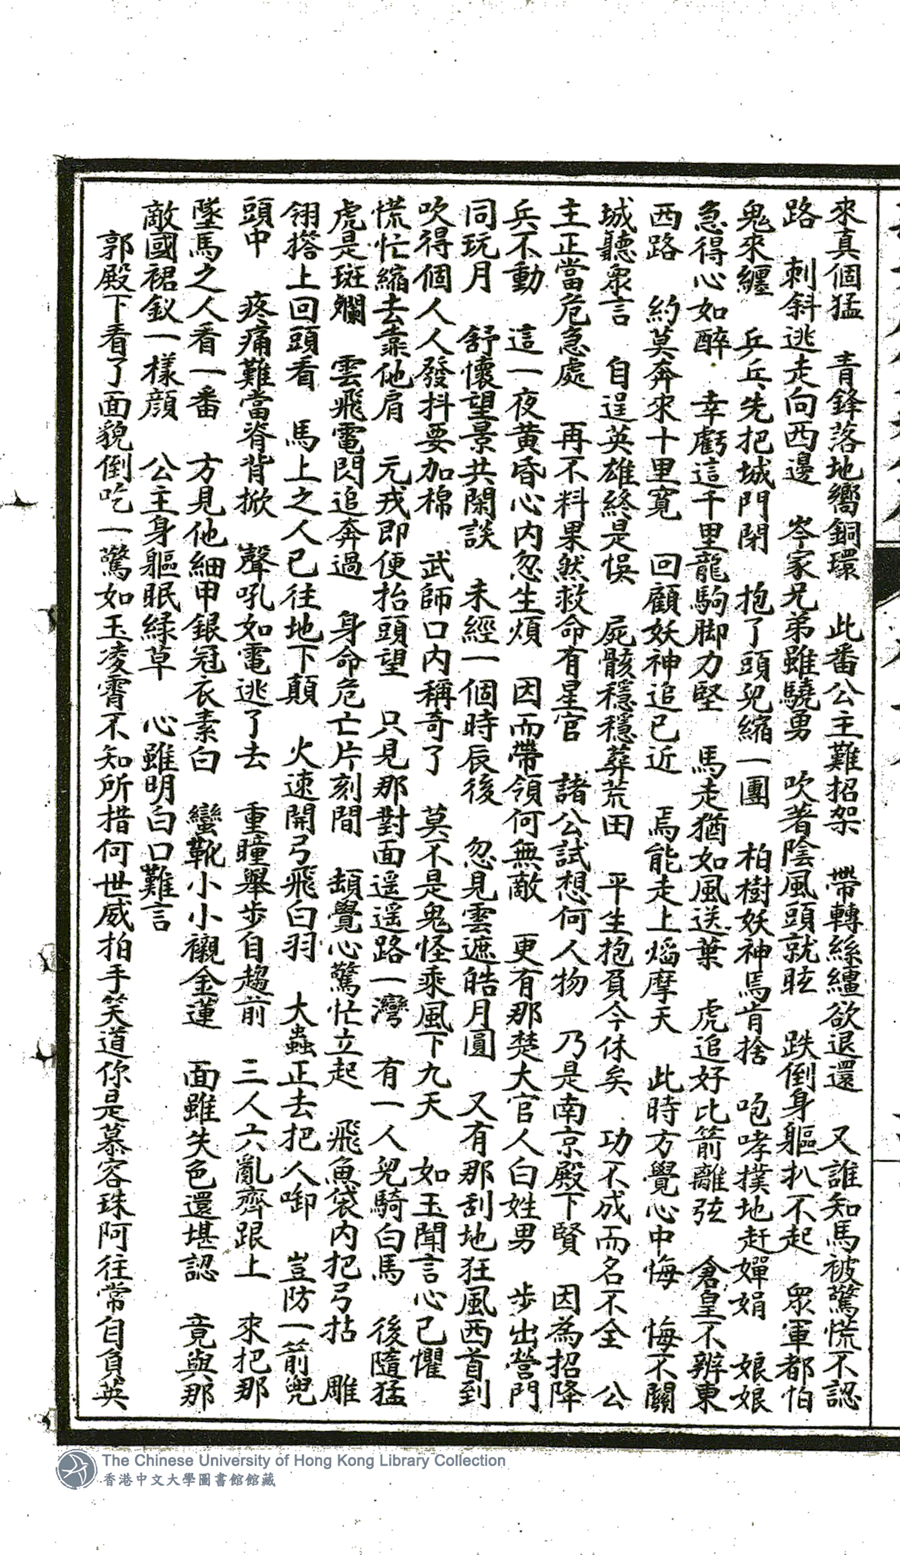 來真個猛　青鋒落地嚮銅環　此番公主難招架　帶轉絲韁欲退還　又誰知馬被驚慌不認
路　刺斜逃走向西邊　岑家兄弟雖驍勇　吹著陰風頭就眩　跌倒身軀扒不起　眾軍都怕
鬼來纏　乒乓先把城門閉　抱了頭兒縮一團　柏樹妖神焉肯捨　咆哮撲地赶嬋娟　娘娘
急得心如醉　幸虧這千里龍駒脚力堅　馬走猶如風送葉　虎追好比箭離弦　倉皇不辨東
西路　約莫奔來十里寬　回顧妖神追已近　焉能走上焰摩天　此時方覺心中悔　悔不關
城聽衆言　自逞英雄終是悞　屍骸穩穩葬荒田　平生抱負今休矣　功不成而名不全　公
主正當危急處　再不料果然救命有星官　諸公試想何人物　乃是南京殿下賢　因為招降
兵不動　這一夜黄昏心内忽生煩　因而帶領何無敵　更有那楚大官人白姓男　步出營門
同玩月　舒懷望景共閑談　未經一個時辰後　忽見雲遮皓月圓　又有那刮地狂風西首到
吹得個人人發抖要加棉　武師口内稱奇了　莫不是鬼怪乘風下九天　如玉聞言心已懼
慌忙縮去靠他肩　元戎即便抬頭望　只見那對面遥遥路一灣　有一人兒騎白馬　後隨猛
虎是斑斕　雲飛電閃追奔過　身命危亡片刻間　頓覺心驚忙立起　飛魚袋内把弓拈　雕
翎搭上回頭看　馬上之人已往地下顛　火速開弓飛白羽　大蟲正去把人啣　豈防一箭兜
頭中　疼痛難當脊背掀　聲吼如雷逃了去　重瞳舉步自趨前　三人六亂齊跟上　來把那
墜馬之人看一番　方見他細甲銀冠衣素白　蠻靴小小襯金蓮　面雖失色還堪認　竟與那
敵國裙釵一樣顔　公主身軀眠綠草　心雖明白口難言
郭殿下看了面貌倒吃一驚如玉凌霄不知所措何世威拍手笑道你是慕容珠阿往常自負英
The Chinese University of Hong Kong Library Collection
香港中文大學圖書館館藏